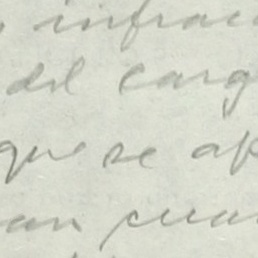 infrac
del carg
que se ap
an cua